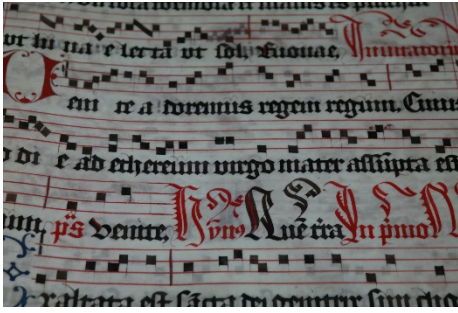 ut lu na e lecta ut sol, Euouae, Inuitatoriu
Ueni te a doremus regem regum, Cuius
o di e ad ethereum uirgo mater assūpta est
ps Venite, Hȳnꝰ Aue In pmo
xaltata est sācta dei genitrix sup cho